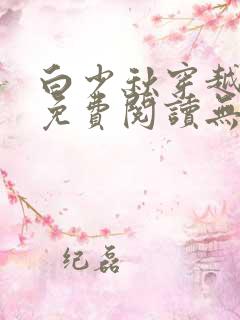 白少秋穿越
免費閱讀無
纪磊